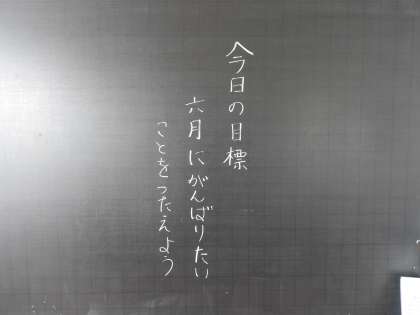 今日の目標
六月にがんばりたい
ことをつたえよう